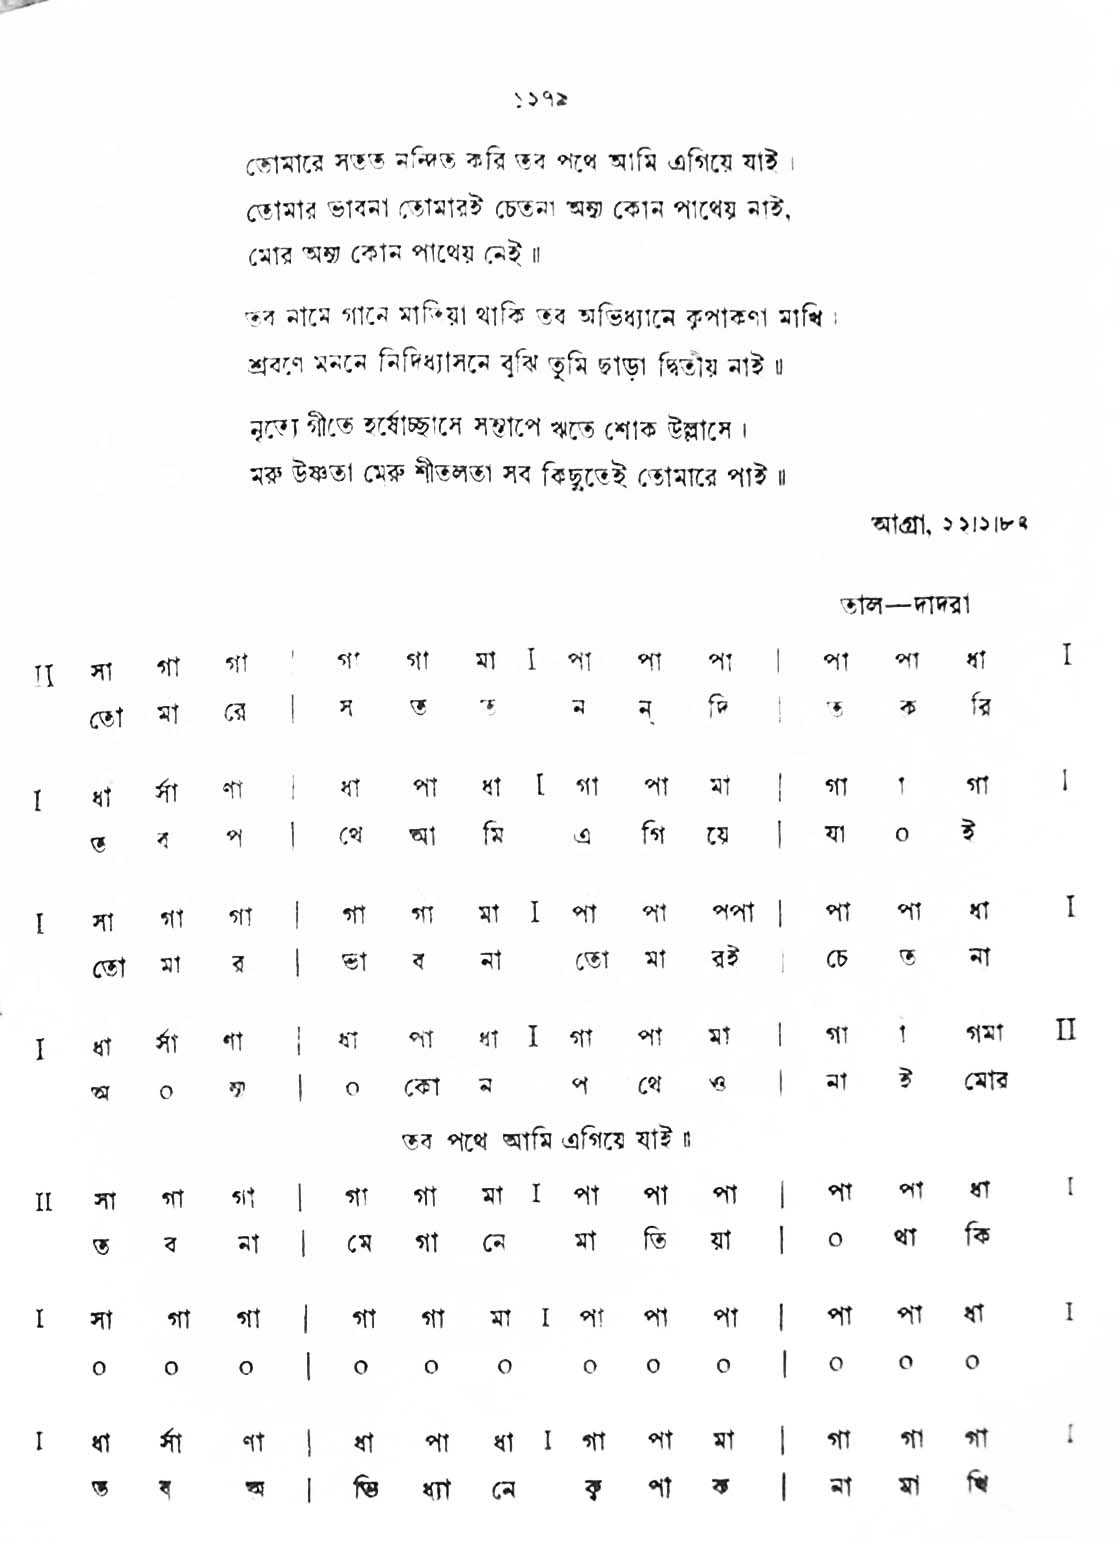 ১১৭৯
তোমারে সতত নন্দিত করি তব পথে আমি এগিয়ে যাই ।
তোমার ভাবনা তোমারই চেতনা অন্য কোন পাথেয় নাই,
মোর অন্য কোন পাথেয় নেই ॥
তব নামে গানে মাতিয়া থাকি তব অভিধ্যানে কৃপাকণা মাখি ।
শ্রবণে মননে নিদিধ্যাসনে বুঝি তুমি ছাড়া দ্বিতীয় নাই ॥
নৃত্যে গীতে হর্ষোচ্ছাসে সন্তাপে ঋতে শোক উল্লাসে ।
মরু উষ্ণতা মেরু শীতলতা সব কিছুতেই তোমারে পাই ॥
আগ্রা, ২২।১।৮৪
তাল—দাদরা
II সা গা গা | গা গা মা I পা পা পা | পা পা ধা I
তো মা রে | স ত ত ন ন্ দি | ত ক রি
I ধা র্সা ণা | ধা পা ধা I গা পা মা | গা া গা I
ত ব প | থে আ মি এ গি য়ে | যা ০ ই
I সা গা গা | গা গা মা I পা পা পপা | পা পা ধা I
তো মা র | ভা ব না তো মা রই | চে ত না
I ধা র্সা ণা | ধা পা ধা I গা পা মা | গা া গমা II
অ ০ ন্য | ০ কো ন প থে ও | না ই মোর
তব পথে আমি এগিয়ে যাই ॥
II সা গা গা | গা গা মা I পা পা পা | পা পা ধা I
ত ব না | মে গা নে মা তি য়া | ০ থা কি
I সা গা গা | গা গা মা I পা পা পা | পা পা ধা I
০ ০ ০ | ০ ০ ০ ০ ০ ০ | ০ ০ ০
I ধা র্সা ণা | ধা পা ধা I গা পা মা | গা গা গা I
ত ব অ | ভি ধ্যা নে কৃ পা ক | না মা খি